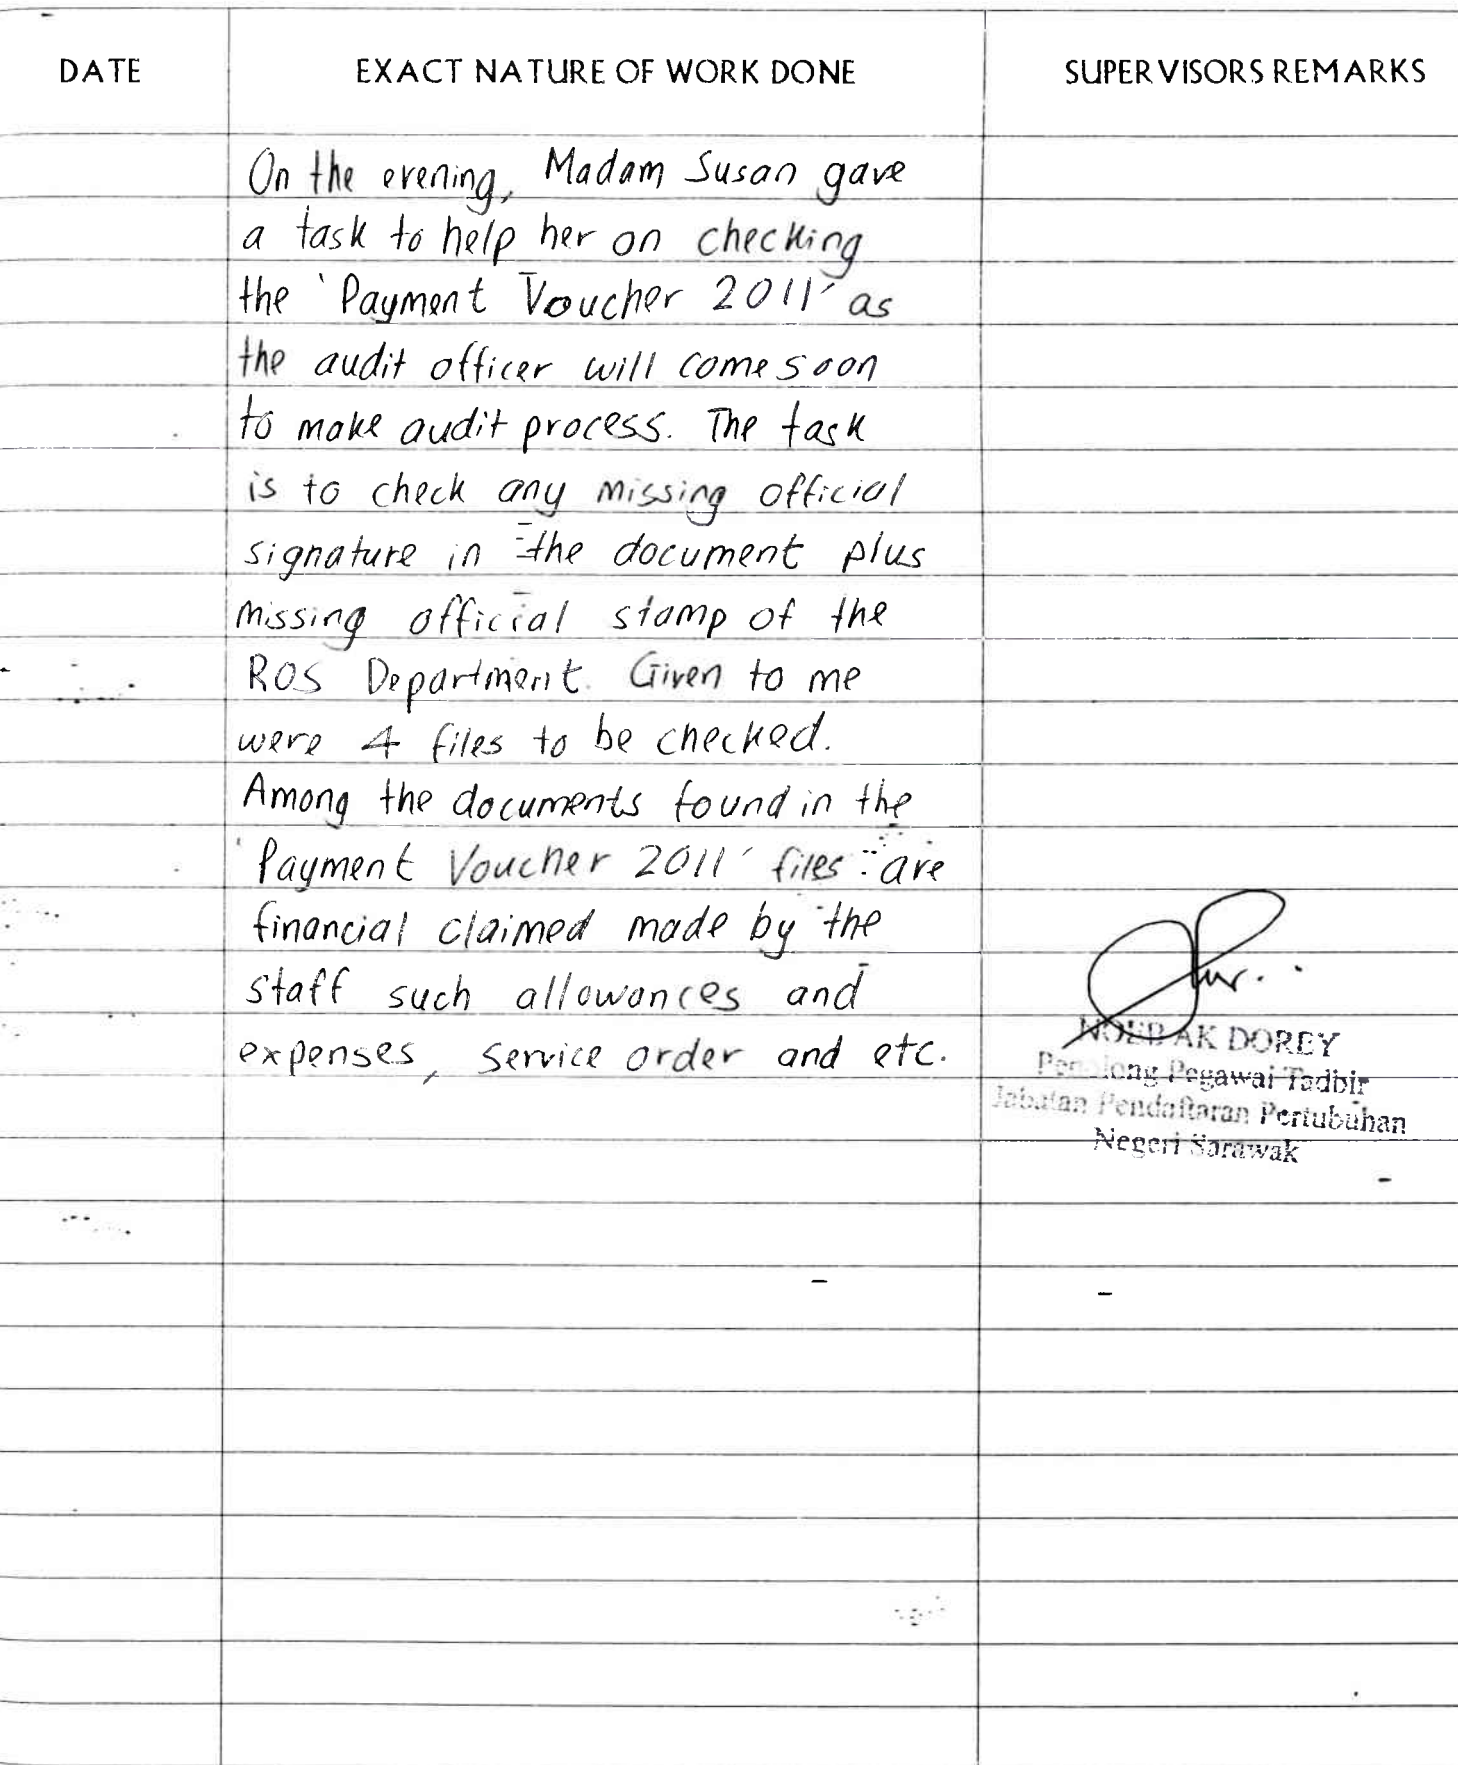 DATE EXACT NATURE OF WORK DONE SUPERVISORS REMARKS
On the evening, Madam Susan gave
a task to help her on checking
the 'Payment Voucher 2011' as
the audit officer will come soon
to make audit process. The task
is to check any missing official
signature in the document plus
missing official stamp of the
ROS Department. Given to me
were 4 files to be checked.
Among the documents found in the
'Payment Voucher 2011' files are
financial claimed made by the
staff such allowances and
expenses, service order and etc.
AK DOREY
Penolong Pegawai Tadbir
Jabatan Pendaftaran Pertubuhan
Negeri Sarawak